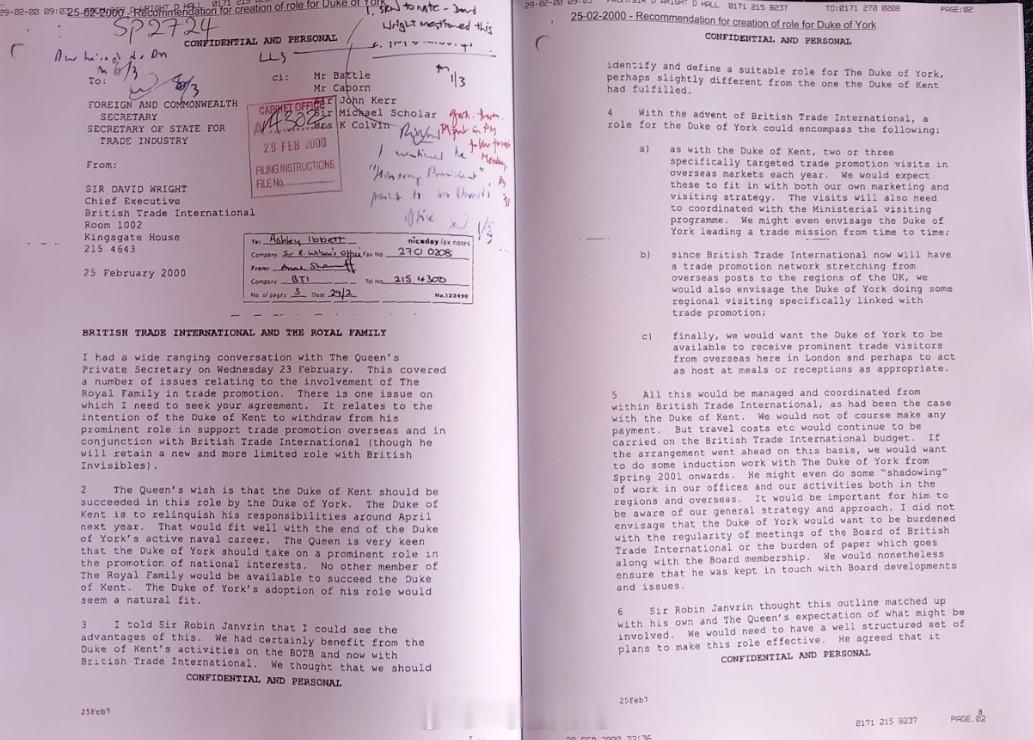 25-02-2000 - Recommendation for creation of role for Duke of York
SP2724
CONFIDENTIAL AND PERSONAL
To:
FOREIGN AND COMMONWEALTH
SECRETARY
SECRETARY OF STATE FOR
TRADE INDUSTRY
From:
SIR DAVID WRIGHT
Chief Executive
British Trade International
Room 1002
Kingsgate House
215 4643
25 February 2000
ci: Mr Battle
Mr Caborn
Sir John Kerr
Sir Michael Scholar
Mrs K Colvin
1/3
CABINET OFFICE
A4302
29 FEB 2000
FILING INSTRUCTIONS
FILE No.
"Honorary President"
1/3
To: Ashley Ibbett niceday fax notes
Company Sir R. Wilson's Office Fax No 270 0208
From:
Company BTI Tel No. 215 4300
No. of pages 3 Date 29/2 No.122498
BRITISH TRADE INTERNATIONAL AND THE ROYAL FAMILY
I had a wide ranging conversation with The Queen's
Private Secretary on Wednesday 23 February. This covered
a number of issues relating to the involvement of The
Royal Family in trade promotion. There is one issue on
which I need to seek your agreement. It relates to the
intention of the Duke of Kent to withdraw from his
prominent role in support trade promotion overseas and in
conjunction with British Trade International (though he
will retain a new and more limited role with British
Invisibles).
2 The Queen's wish is that the Duke of Kent should be
succeeded in this role by the Duke of York. The Duke of
Kent is to relinquish his responsibilities around April
next year. That would fit well with the end of the Duke
of York's active naval career. The Queen is very keen
that the Duke of York should take on a prominent role in
the promotion of national interests. No other member of
The Royal Family would be available to succeed the Duke
of Kent. The Duke of York's adoption of his role would
seem a natural fit.
3 I told Sir Robin Janvrin that I could see the
advantages of this. We had certainly benefit from the
Duke of Kent's activities on the BOTB and now with
British Trade International. We thought that we should
CONFIDENTIAL AND PERSONAL
25Feb7
PAGE:02
25-02-2000 - Recommendation for creation of role for Duke of York
CONFIDENTIAL AND PERSONAL
identify and define a suitable role for The Duke of York,
perhaps slightly different from the one the Duke of Kent
had fulfilled.
4 With the advent of British Trade International, a
role for the Duke of York could encompass the following:
a) as with the Duke of Kent, two or three
specifically targeted trade promotion visits in
overseas markets each year. We would expect
these to fit in with both our own marketing and
visiting strategy. The visits will also need
to coordinated with the Ministerial visiting
programme. We might even envisage the Duke of
York leading a trade mission from time to time;
b) since British Trade International now will have
a trade promotion network stretching from
overseas posts to the regions of the UK, we
would also envisage the Duke of York doing some
regional visiting specifically linked with
trade promotion;
c) finally, we would want the Duke of York to be
available to receive prominent trade visitors
from overseas here in London and perhaps to act
as host at meals or receptions as appropriate.
5 All this would be managed and coordinated from
within British Trade International, as had been the case
with the Duke of Kent. We would not of course make any
payment. But travel costs etc would continue to be
carried on the British Trade International budget. If
the arrangement went ahead on this basis, we would want
to do some induction work with The Duke of York from
Spring 2001 onwards. He might even do some "shadowing"
of work in our offices and our activities both in the
regions and overseas. It would be important for him to
be aware of our general strategy and approach. I did not
envisage that the Duke of York would want to be burdened
with the regularity of meetings of the Board of British
Trade International or the burden of paper which goes
along with the Board membership. We would nonetheless
ensure that he was kept in touch with Board developments
and issues.
6 Sir Robin Janvrin thought this outline matched up
with his own and The Queen's expectation of what might be
involved. We would need to have a well structured set of
plans to make this role effective. He agreed that it
CONFIDENTIAL AND PERSONAL
25Feb7
8
0171 215 8237 PAGE.02